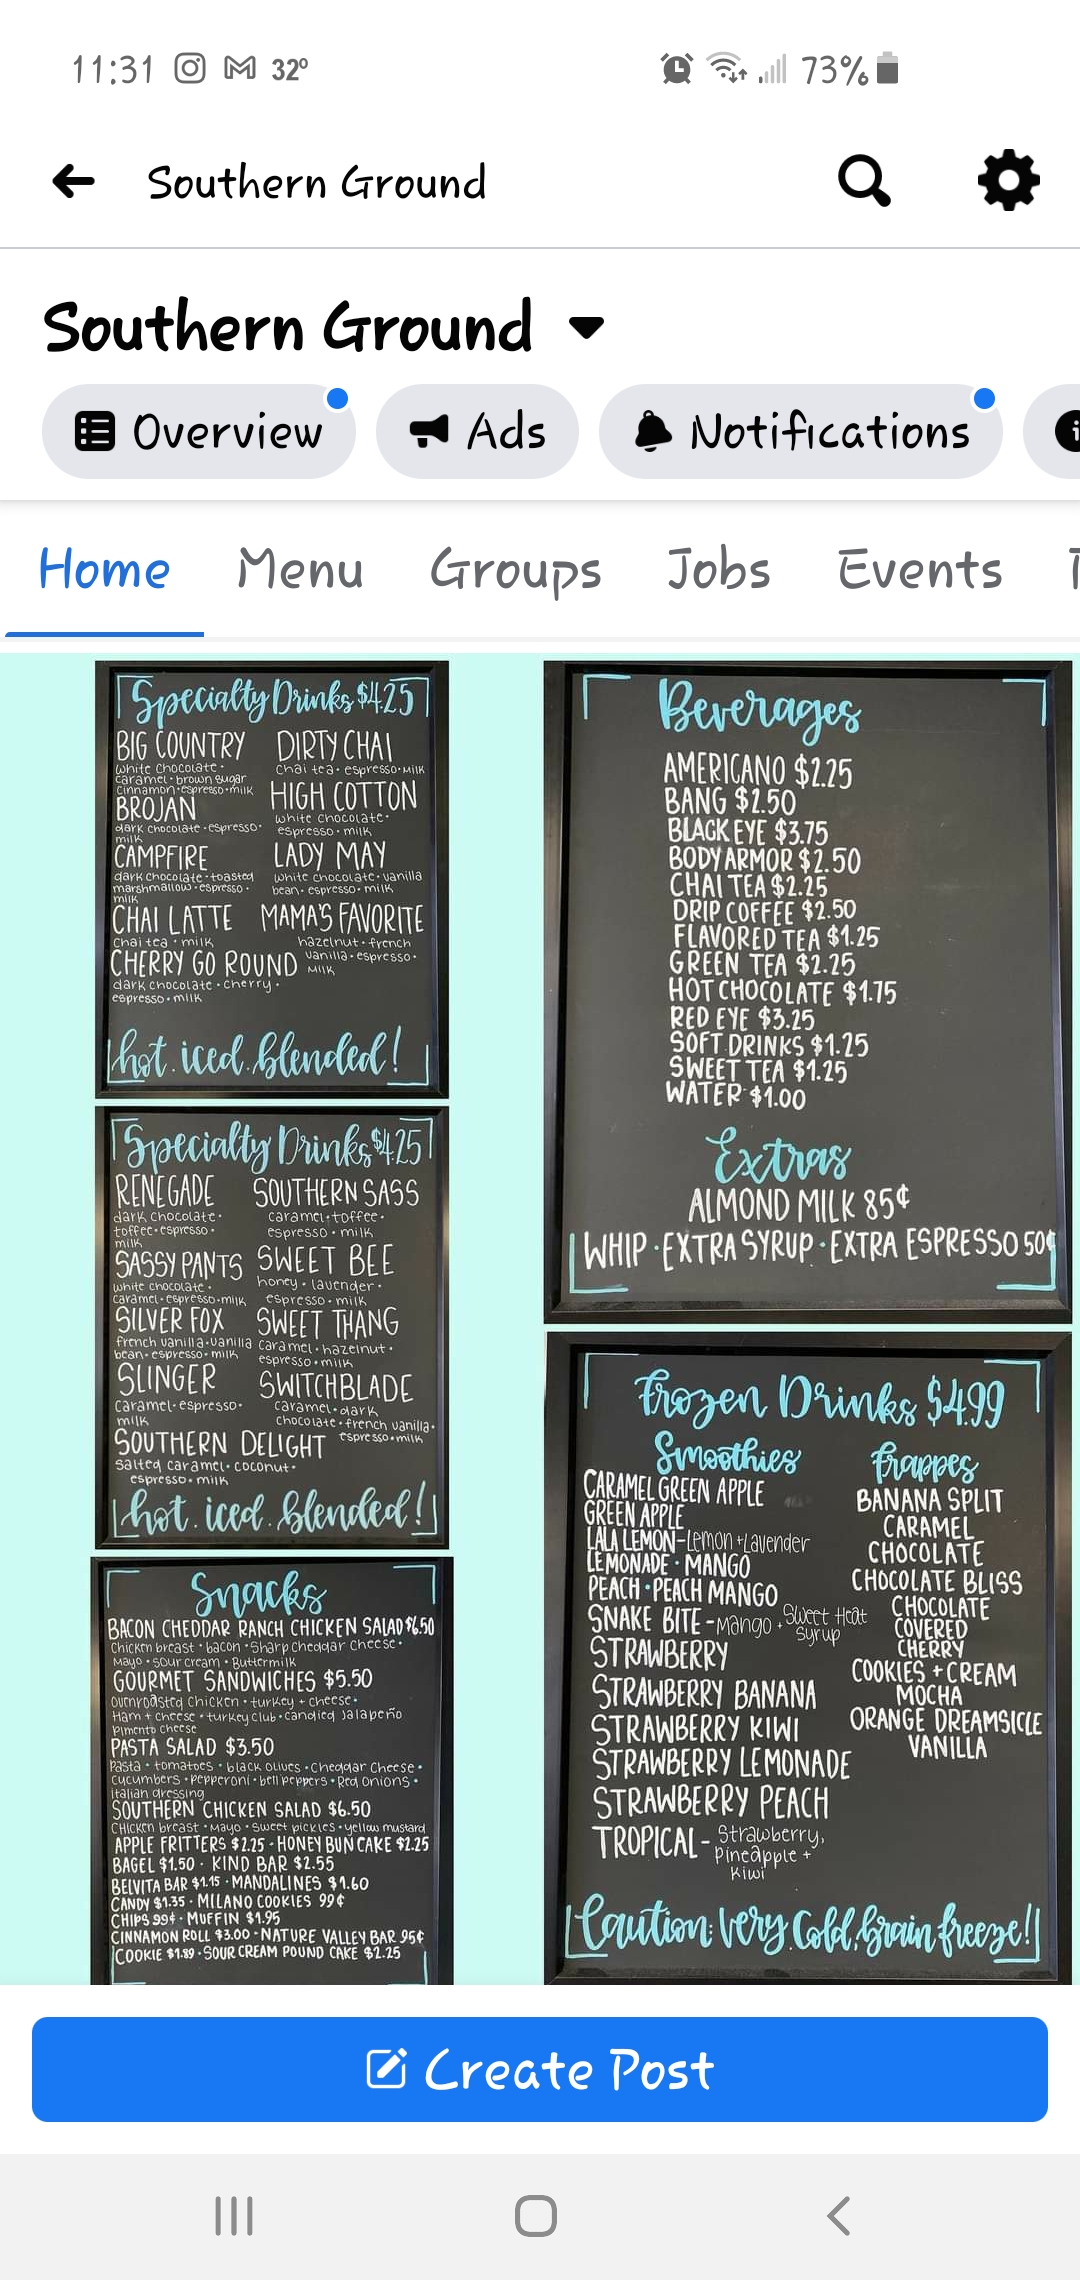 11:31 32°
73%
Southern Ground
Southern Ground
Overview Ads Notifications
Home Menu Groups Jobs Events
Specialty Drinks $4.25
BIG COUNTRY
white chocolate ·
caramel · brown sugar
cinnamon · espresso · milk
BROJAN
dark chocolate · espresso ·
milk
CAMPFIRE
dark chocolate · toasted
marshmallow · espresso ·
milk
CHAI LATTE
Chai tea · milk
CHERRY GO ROUND
dark chocolate · cherry ·
espresso · milk
DIRTY CHAI
Chai tea · espresso · milk
HIGH COTTON
white chocolate ·
espresso · milk
LADY MAY
white chocolate · vanilla
bean · espresso · milk
MAMA'S FAVORITE
hazelnut · french
vanilla · espresso ·
milk
hot . iced . blended!
Specialty Drinks $4.25
RENEGADE
dark chocolate ·
toffee · espresso ·
milk
SASSY PANTS
white chocolate ·
caramel · espresso · milk
SILVER FOX
french vanilla · vanilla
bean · espresso · milk
SLINGER
Caramel · espresso ·
milk
SOUTHERN DELIGHT
salted caramel · coconut ·
espresso · milk
SOUTHERN SASS
caramel · toffee ·
espresso · milk
SWEET BEE
honey · lavender ·
espresso · milk
SWEET THANG
caramel · hazelnut ·
espresso · milk
SWITCHBLADE
caramel · dark
chocolate · french vanilla ·
espresso · milk
hot . iced . blended!
Snacks
BACON CHEDDAR RANCH CHICKEN SALAD $6.50
Chicken breast · bacon · Sharp cheddar cheese ·
Mayo · sour cream · Buttermilk
GOURMET SANDWICHES $5.50
Ovenroasted chicken · turkey + cheese ·
Ham + cheese · turkey club · candied jalapeño
pimento cheese
PASTA SALAD $3.50
Pasta · tomatoes · black olives · Cheddar Cheese ·
cucumbers · pepperoni · bell peppers · Red Onions ·
italian dressing
SOUTHERN CHICKEN SALAD $6.50
Chicken breast · Mayo · Sweet pickles · yellow mustard
APPLE FRITTERS $2.25 · HONEY BUN CAKE $2.25
BAGEL $1.50 · KIND BAR $2.55
BELVITA BAR $1.15 · MANDALINES $1.60
CANDY $1.35 · MILANO COOKIES 99¢
CHIPS 99¢ · MUFFIN $1.95
CINNAMON ROLL $3.00 · NATURE VALLEY BAR 95¢
COOKIE $1.89 · SOUR CREAM POUND CAKE $2.25
Beverages
AMERICANO $2.25
BANG $2.50
BLACK EYE $3.75
BODY ARMOR $2.50
CHAI TEA $2.25
DRIP COFFEE $2.50
FLAVORED TEA $1.25
GREEN TEA $2.25
HOT CHOCOLATE $1.75
RED EYE $3.25
SOFT DRINKS $1.25
SWEET TEA $1.25
WATER $1.00
Extras
ALMOND MILK 85¢
WHIP · EXTRA SYRUP · EXTRA ESPRESSO 50¢
Frozen Drinks $4.99
Smoothies
CARAMEL GREEN APPLE
GREEN APPLE
LALA LEMON - Lemon + Lavender
LEMONADE · MANGO
PEACH · PEACH MANGO
SNAKE BITE - Mango + Sweet Heat
Syrup
STRAWBERRY
STRAWBERRY BANANA
STRAWBERRY KIWI
STRAWBERRY LEMONADE
STRAWBERRY PEACH
TROPICAL - Strawberry,
Pineapple +
Kiwi
Frappes
BANANA SPLIT
CARAMEL
CHOCOLATE
CHOCOLATE BLISS
CHOCOLATE
COVERED
CHERRY
COOKIES + CREAM
MOCHA
ORANGE DREAMSICLE
VANILLA
Caution: Very Cold, brain freeze!!
Create Post